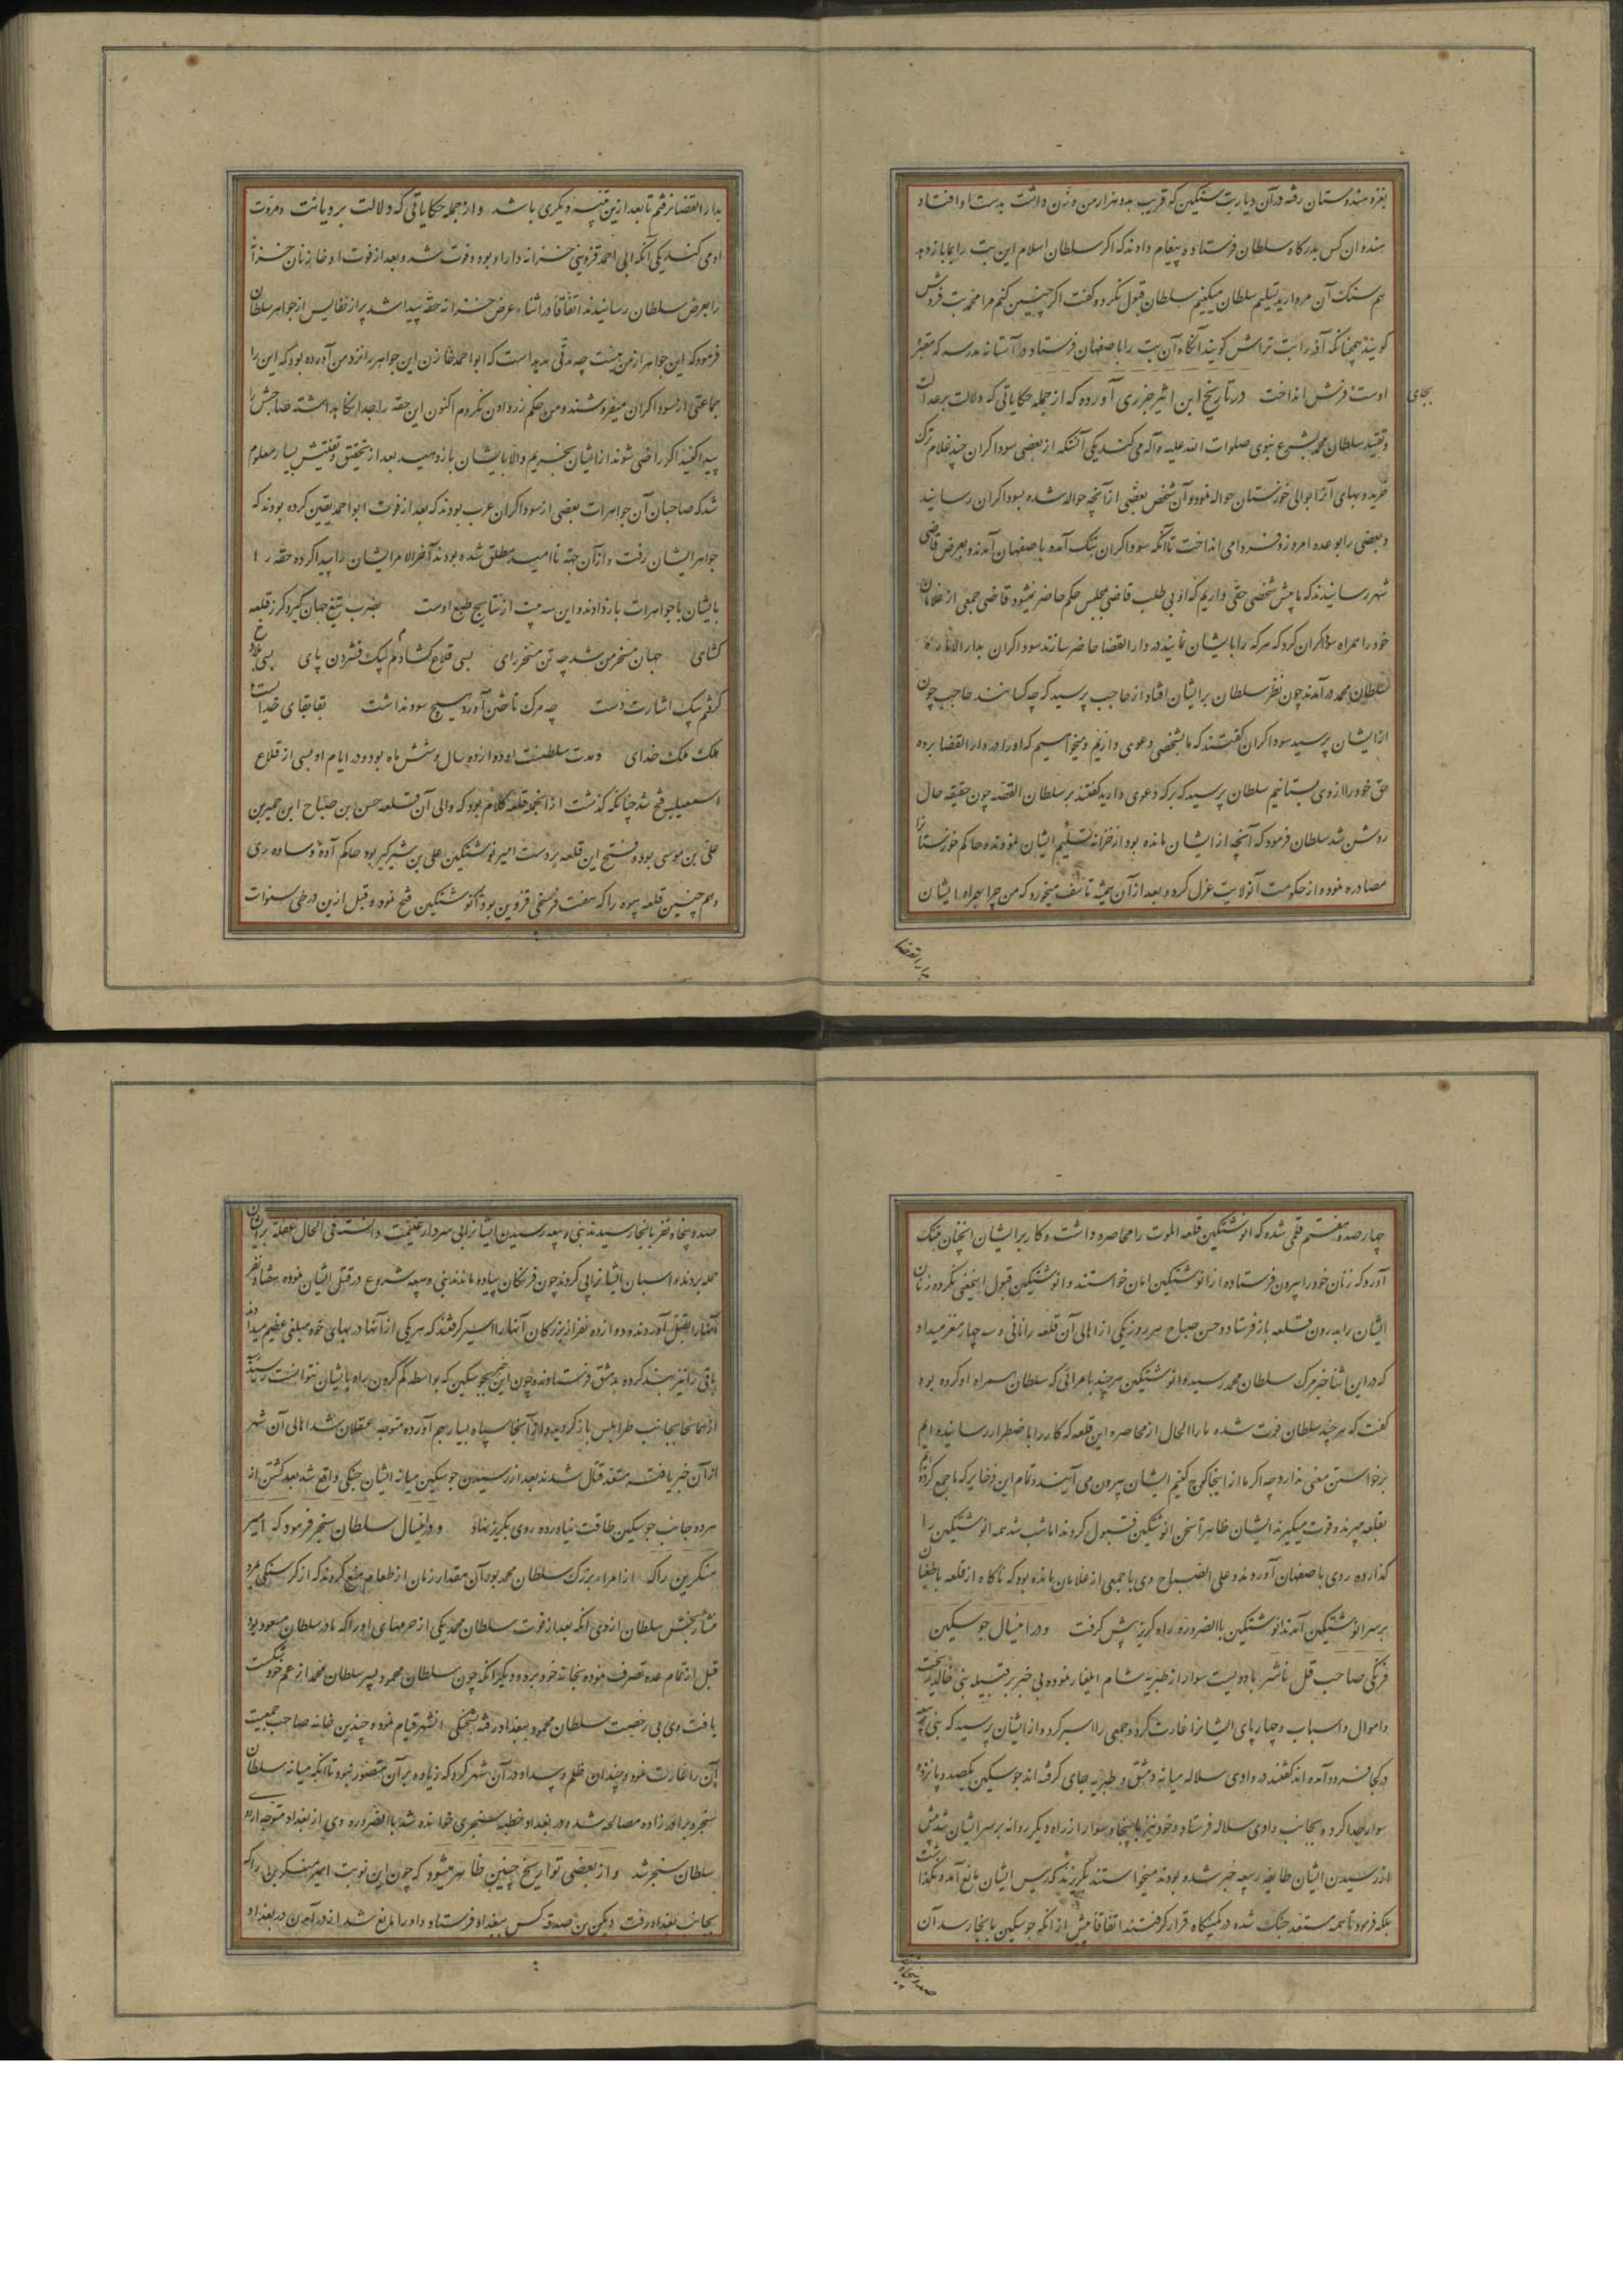 بغزو هندوستان رفته در آن دیار بت سنگین که قریب بده هزار من وزن داشت بدست او افتاد
هندوان کس بدرگاه سلطان فرستاده پیغام دادند که اگر سلطان اسلام این بت را بما باز دهد
هم سنگ آن مروارید تسلیم سلطان میکنیم سلطان قبول نکرد و گفت اگر چنین کنم مرا محمد بت فروش
گویند همچنانکه آذر را بت تراش گویند آنگاه آن بت را باصفهان فرستاد و در آستانه مدرسه که مقبره
بجای
اوست فرش انداخت در تاریخ ابن اثیر جزری آورده که از جمله حکایاتی که دلالت بر عدالت
و تقید سلطان محمد بشرع نبوی صلوات الله علیه و آله می کند یکی آنستکه از بعضی سوداگران چند غلام ترک
خریده بهای آنرا بوالی خوزستان حواله نمود و آن شخص بعضی از آنچه حواله شده بسوداگران رسانید
و بعضی را بوعده امروز و فردا می انداخت تا آنکه سوداگران بتنگ آمده باصفهان آمدند و بعرض قاضی
شهر رسانیدند که ما پیش شخصی حقی داریم که او بی طلب قاضی بمجلس حکم حاضر نمیشود قاضی جمعی از غلامان
خود را همراه سوداگران کرد که هر که را بایشان نمایند در دار القضا حاضر سازند سوداگران بدار الاماره
سلطان محمد در آمدند چون نظر سلطان بر ایشان افتاد از حاجب پرسید که چه کسانند حاجب چون
از ایشان پرسید سوداگران گفتند که ما بشخصی دعوی داریم و میخواهیم که او را در دار القضا برده
حق خود را از وی بستانیم سلطان پرسید که بر که دعوی دارید گفتند بر سلطان القصه چون حقیقه حال
روشن شد سلطان فرمود که آنچه از ایشان مانده بود از خزانه تسلیم ایشان نمودند و حاکم خوزستانرا
مصادره نمود و از حکومت آنولایت عزل کرد و بعد از آن همیشه تاسف میخورد که من چرا همراه ایشان
بدار القضا
بدار القضا نرفتم تا بعد ازین تنبیه دیگری باشد و از جمله حکایاتی که دلالت بر دیانت و مروت
او می کند یکی آنکه ابی احمد قزوینی خزانه دار او بوده و فوت شد و بعد از فوت او خازنان خزانه
را بعرض سلطان رسانیدند اتفاقا در اثناء عرض خزانه حقه پیدا شد پر از نفایس از جواهر سلطان
فرمود که این جواهر از من نیست چه مدتی مدید است که ابو احمد خازن این جواهر را نزد من آورده بود که این را
جماعتی از سوداگران میفروشند و من حکم زر دادن نکردم اکنون این حقه را جدا نگاهداشته صاحبش را
پیدا کنید اگر راضی شوند از ایشان بخریم والا بایشان باز دهید بعد از تحقیق و تفتیش بسیار معلوم
شد که صاحبان آن جواهرات بعضی از سوداگران عرب بودند که بعد از فوت ابو احمد یقین کرده بودند که
جواهر ایشان رفت و از آن جهة ناامید مطلق شده بودند آخر الامر ایشان را پیدا کرده حقه را
بایشان با جواهرات باز دادند و این سه بیت از نتایج طبع اوست بضرب تیغ جهان گیر و گرز قلعه
گشای جهان مسخر من شد چه تن مسخر رای بسی قلاع گشادم بیک فشردن پای بسی بلاد
گرفتم بیک اشارت دست چه مرگ تاختن آورد هیچ سود نداشت بقا بقای خداست و
ملک ملک خدای و مدت سلطنت او دوازده سال و شش ماه بود و در ایام او بسی از قلاع
اسمعیلیه فتح شد چنانکه گذشت از آنجمله قلعه کلام بود که والی آن قلعه حسن بن صباح ابن حمیر بن
علی بن موسی بوده فتح این قلعه بر دست امیر نوشتکین علی بن شیرگیر بود حاکم آوه و ساوه ری
و هم چنین قلعه بیوه را که هفت فرسخی قزوین بود انوشتکین فتح نمود و قبل ازین در طی سنوات
چهار صد و هفتم قلمی شده که انوشتکین قلعه الموت را محاصره داشت و کار بر ایشان آنچنان بتنگ
آورد که زنان خود را بیرون فرستاده از انوشتکین امان خواستند و انوشتکین قبول اینمعنی نکرده زنان
ایشان را بدرون قلعه باز فرستاد و حسن صباح هر روز یکی از اهالی آن قلعه را نانی و سه چهار مغز میداد
که در این اثنا خبر مرگ سلطان محمد رسید و انوشتکین هر چند بامرائی که سلطان همراه او کرده بود
گفت که هر چند سلطان فوت شده ما را الحال از محاصره این قلعه که کار را باضطرار رسانیده ایم
برخواستن معنی ندارد چه اگر ما از اینجا کوچ کنیم ایشان بیرون می آیند و تمام این ذخایر که ما جمع کردیم
بقلعه میبرند و قوت میگیرند ایشان ظاهرا سخن انوشتکین قبول کردند اما شب شد همه انوشتکین را
گذارده روی باصفهان آوردند و علی الصباح وی با جمعی از غلامان مانده بود که ناگاه از قلعه باطنیان
بر سر انوشتکین آمدند انوشتکین باالضروره راه گریز پیش گرفت و در اینسال جوسکین
فرنگی صاحب تل باشر با دویست سوار از طبریه شام ایلغار نموده بی خبر بر قبیله بنی خالد ریخت
و اموال و اسباب و چهار پای ایشانرا غارت کرد و جمعی را اسیر کرد و از ایشان پرسید که بنی ربیعه
در کجا فرود آمده اند گفتند در وادی سلاله میانه دمشق و طبریه جای گرفته اند جوسکین یکصد و پانزده
سوار جدا کرده بجانب وادی سلاله فرستاد و خود نیز با پنجاه سوار از راه دیگر روانه بر سر ایشان شد پیش
از رسیدن ایشان طایفه ربیعه خبر شده بودند میخواستند بگریزند که رئیس ایشان مانع آمد و نگذاشت
بلکه فرمود تا همه مستعد جنگ شده در کمینگاه قرار گرفتند اتفاقا پیش از انکه جوسکین بانجا رسد آن
صد و پنجاه
صد و پنجاه نفر بانجا رسیدند بنی ربیعه رسیدن ایشانرا بی سردار غنیمت دانسته فی الحال غفلة بر ایشان
حمله بردند و اسبان ایشانرا پی کردند چون فرنگان پیاده ماندند بنی ربیعه شروع در قتل ایشان نموده هفتاد نفر
آنها را بقتل آوردند و دوازده نفر از بزرگان آنها را اسیر گرفتند که هر یکی از آنها در بهای خود مبلغی عظیم میدادند
باقی را نیز بند کرده بدمشق فرستادند و چون این خبر بجوسکین که بواسطه گم کردن راه بایشان نتوانست رسید
از همانجا بجانب طرابلس باز گردید و از آنجا سپاه بسیار بهم آورده متوجه عسقلان شد اهالی آن شهر
از آن خبر یافته مستعد قتال شدند بعد از رسیدن جوسکین میانه ایشان جنگی واقع شد بعد کشتن از
هر دو جانب جوسکین طاقت نیاورده روی بگریز نهاد و در اینسال سلطان سنجر فرمود که امیر
منکبرین را که از امراء بزرگ سلطان محمد بود آن مقدار زمان از طعام منع کردند که از گرسنگی مرد
منشأ رنجش سلطان از وی آنکه بعد از فوت سلطان محمد یکی از حرمهای او را که مادر سلطان مسعود بود
قبل از تمام عده تصرف نموده بخانه خود برد و دیگر آنکه چون سلطان محمود پسر سلطان محمد از عم خود شکست
یافت وی بی رخصت سلطان محمود ببغداد رفته بشحنگی انشهر قیام نمود و چندین خانه صاحب جمعیت
آن را غارت نمود و چندان ظلم و بیداد در آن شهر کرد که زیاده بر آن متصور نبود تا آنکه میانه سلطان
سنجر و برادر زاده مصالحه شد و در بغداد خطبه سنجری خوانده شد باالضروره وی از بغداد متوجه اردوی
سلطان سنجر شد و از بعضی تواریخ چنین ظاهر میشود که چون این نوبت امیر منکبرین را که
بجانب بغداد رفت دبیس بن صدقه کس ببغداد فرستاد و او را مانع شد از در آمدن در بغداد